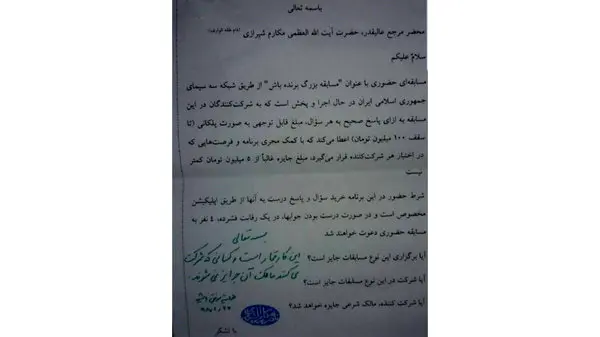 باسمه تعالی
محضر مرجع عالیقدر، حضرت آیت الله العظمی مکارم شیرازی (دام ظله الوارف)
سلامٌ علیکم
مسابقه‌ای حضوری با عنوان "مسابقه بزرگ برنده باش" از طریق شبکه سه سیمای
جمهوری اسلامی ایران در حال اجرا و پخش است که به شرکت‌کنندگان در این
مسابقه به ازای پاسخ صحیح به هر سؤال، مبلغ قابل توجهی به صورت پلکانی (تا
سقف ۱۰۰ میلیون تومان) اعطا می‌کند که با کمک مجری برنامه و فرصت‌هایی که
در اختیار هر شرکت‌کننده قرار می‌گیرد، مبلغ جایزه غالباً از ۵ میلیون تومان کمتر
نیست
شرط حضور در این برنامه خرید سؤال و پاسخ درست به آنها از طریق اپلیکیشن
مخصوص است و در صورت درست بودن جوابها، در یک رقابت فشرده، ٤ نفر به
مسابقه حضوری دعوت خواهند شد
بسمه تعالی
آیا برگزاری این نوع مسابقات جایز است؟
این کار قمار است و کسانی که شرکت
آیا شرکت در این نوع مسابقات جایز است؟
می کنند مالک آن جوایز نمی شوند.
همیشه موفق باشید
آیا شرکت کننده، مالک شرعی جایزه خواهد شد؟
با تشکر